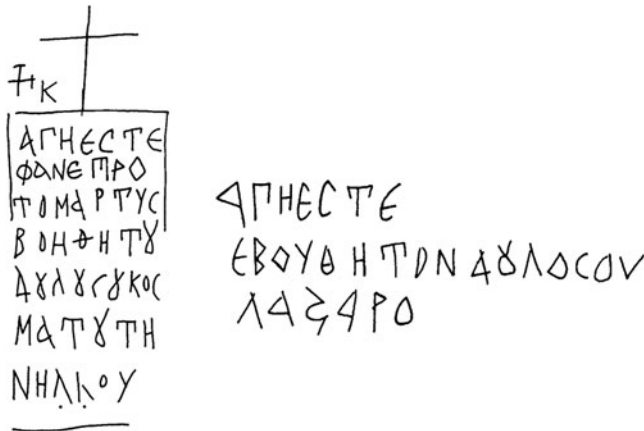 ΑΓΗΕCΤΕ
ΦΑΝΕΠΡΟ
ΤΟΜΑΡΤΥC
ΒΟΗΘΗΤȣ
ΔȣΛȣCȣΚΟC
ΜΑΤȣΤΗ
ΝΗΛ̣Κ̣ΟΥ
ΑΓΗΕCΤΕ
ΕΒΟΥΘΗΤΟΝΔȣΛΟCΟΥ
ΛΑΖΑΡΟ